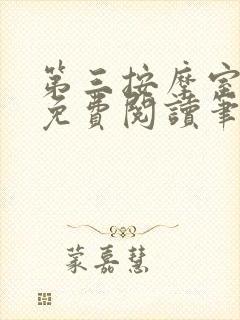 第三按摩室
免費閱讀筆
蒙嘉慧